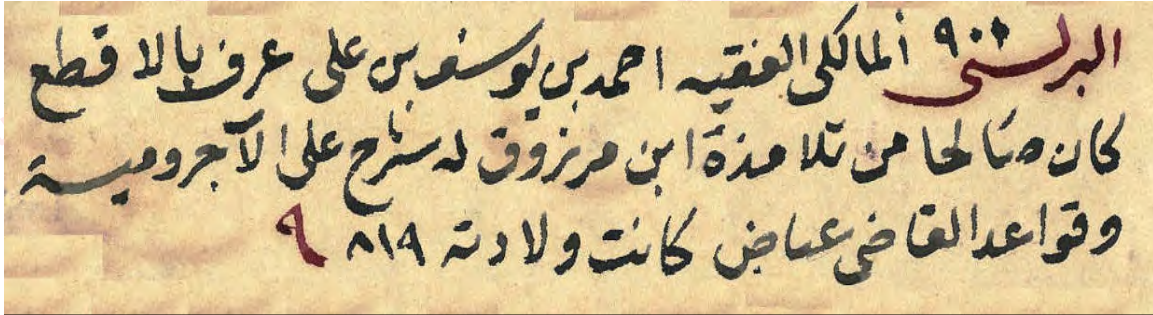 البرلسى ٩٠٠ المالكى الفقيه احمد بن يوسف بن على عرف بالاقطع
كان صالحا من تلامذة ابن مرزوق له شرح على الآجرومية
وقواعد القاضى عياض كانت ولادته ٨١٩ ٩